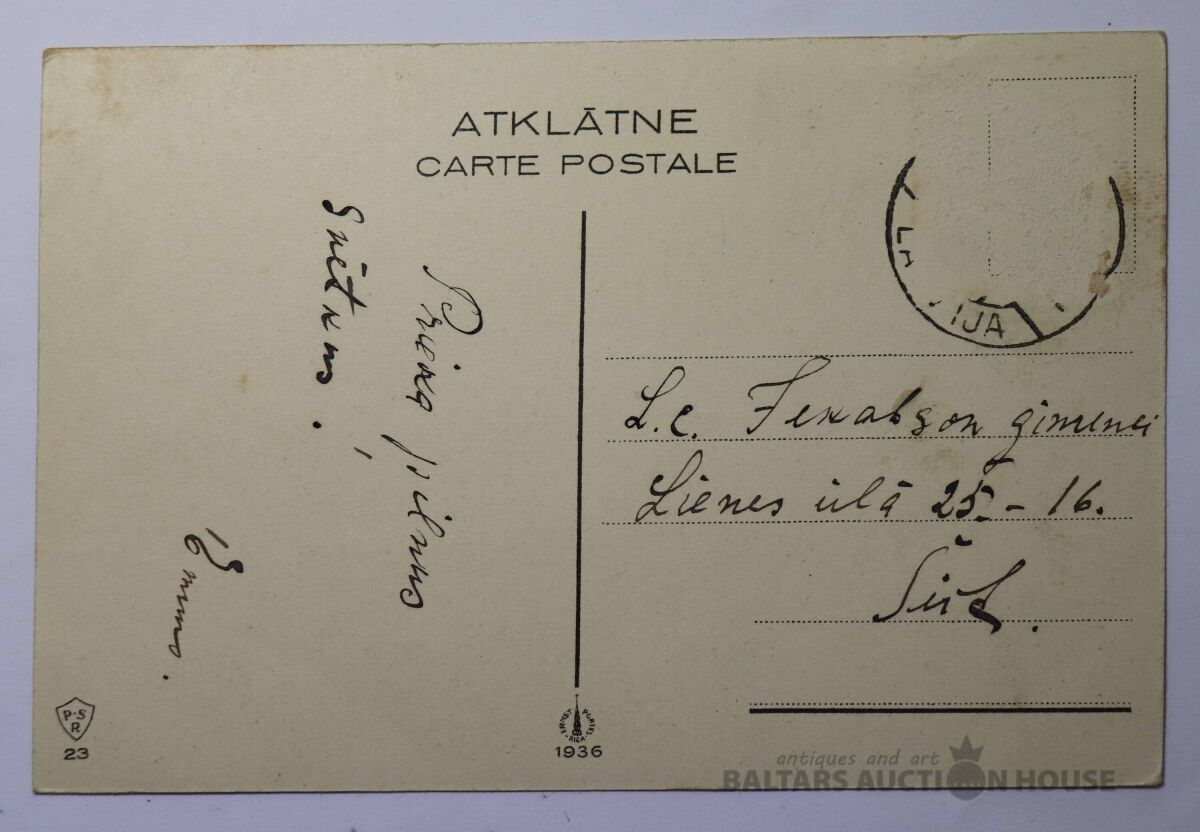 ATKLĀTNE
CARTE POSTALE
Prieka pilnus
svētkus.
Emma.
LA IJA
L.c. Jekabson ģimenei
Lienes ielā 25.-16.
Šeit.
P·S
R
23
ERNST PŪRIET
RIGA
1936
antiques and art
BALTARS AUCTION HOUSE